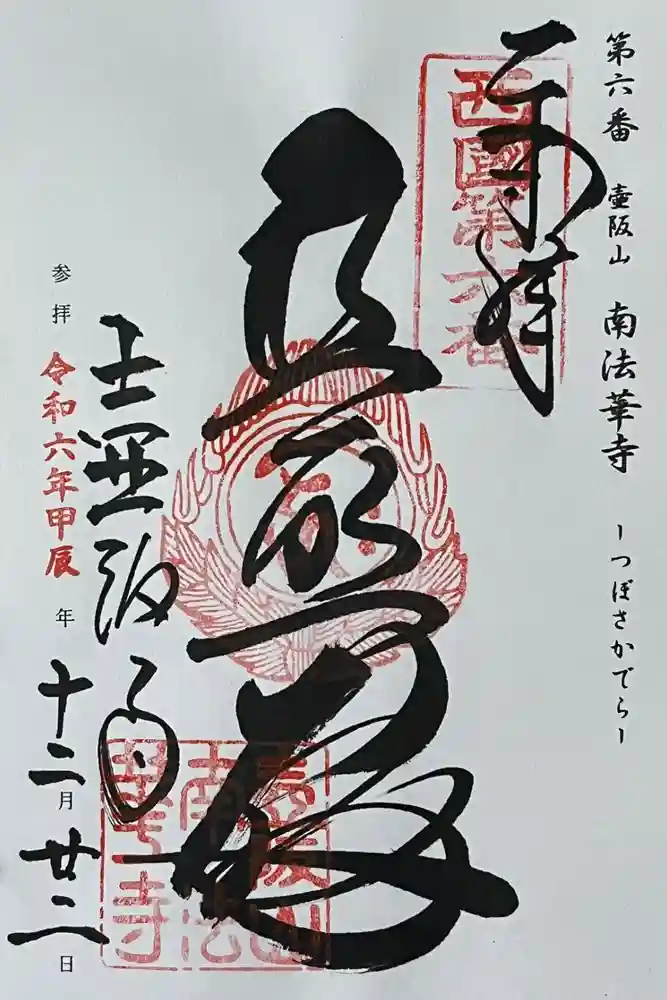 第六番 壷阪山 南法華寺 ーつぼさかでらー
奉拝
西國第六番
普照殿
壷阪山
南法
華寺
壷阪寺
参拝 令和六年甲辰年十二月廿二日